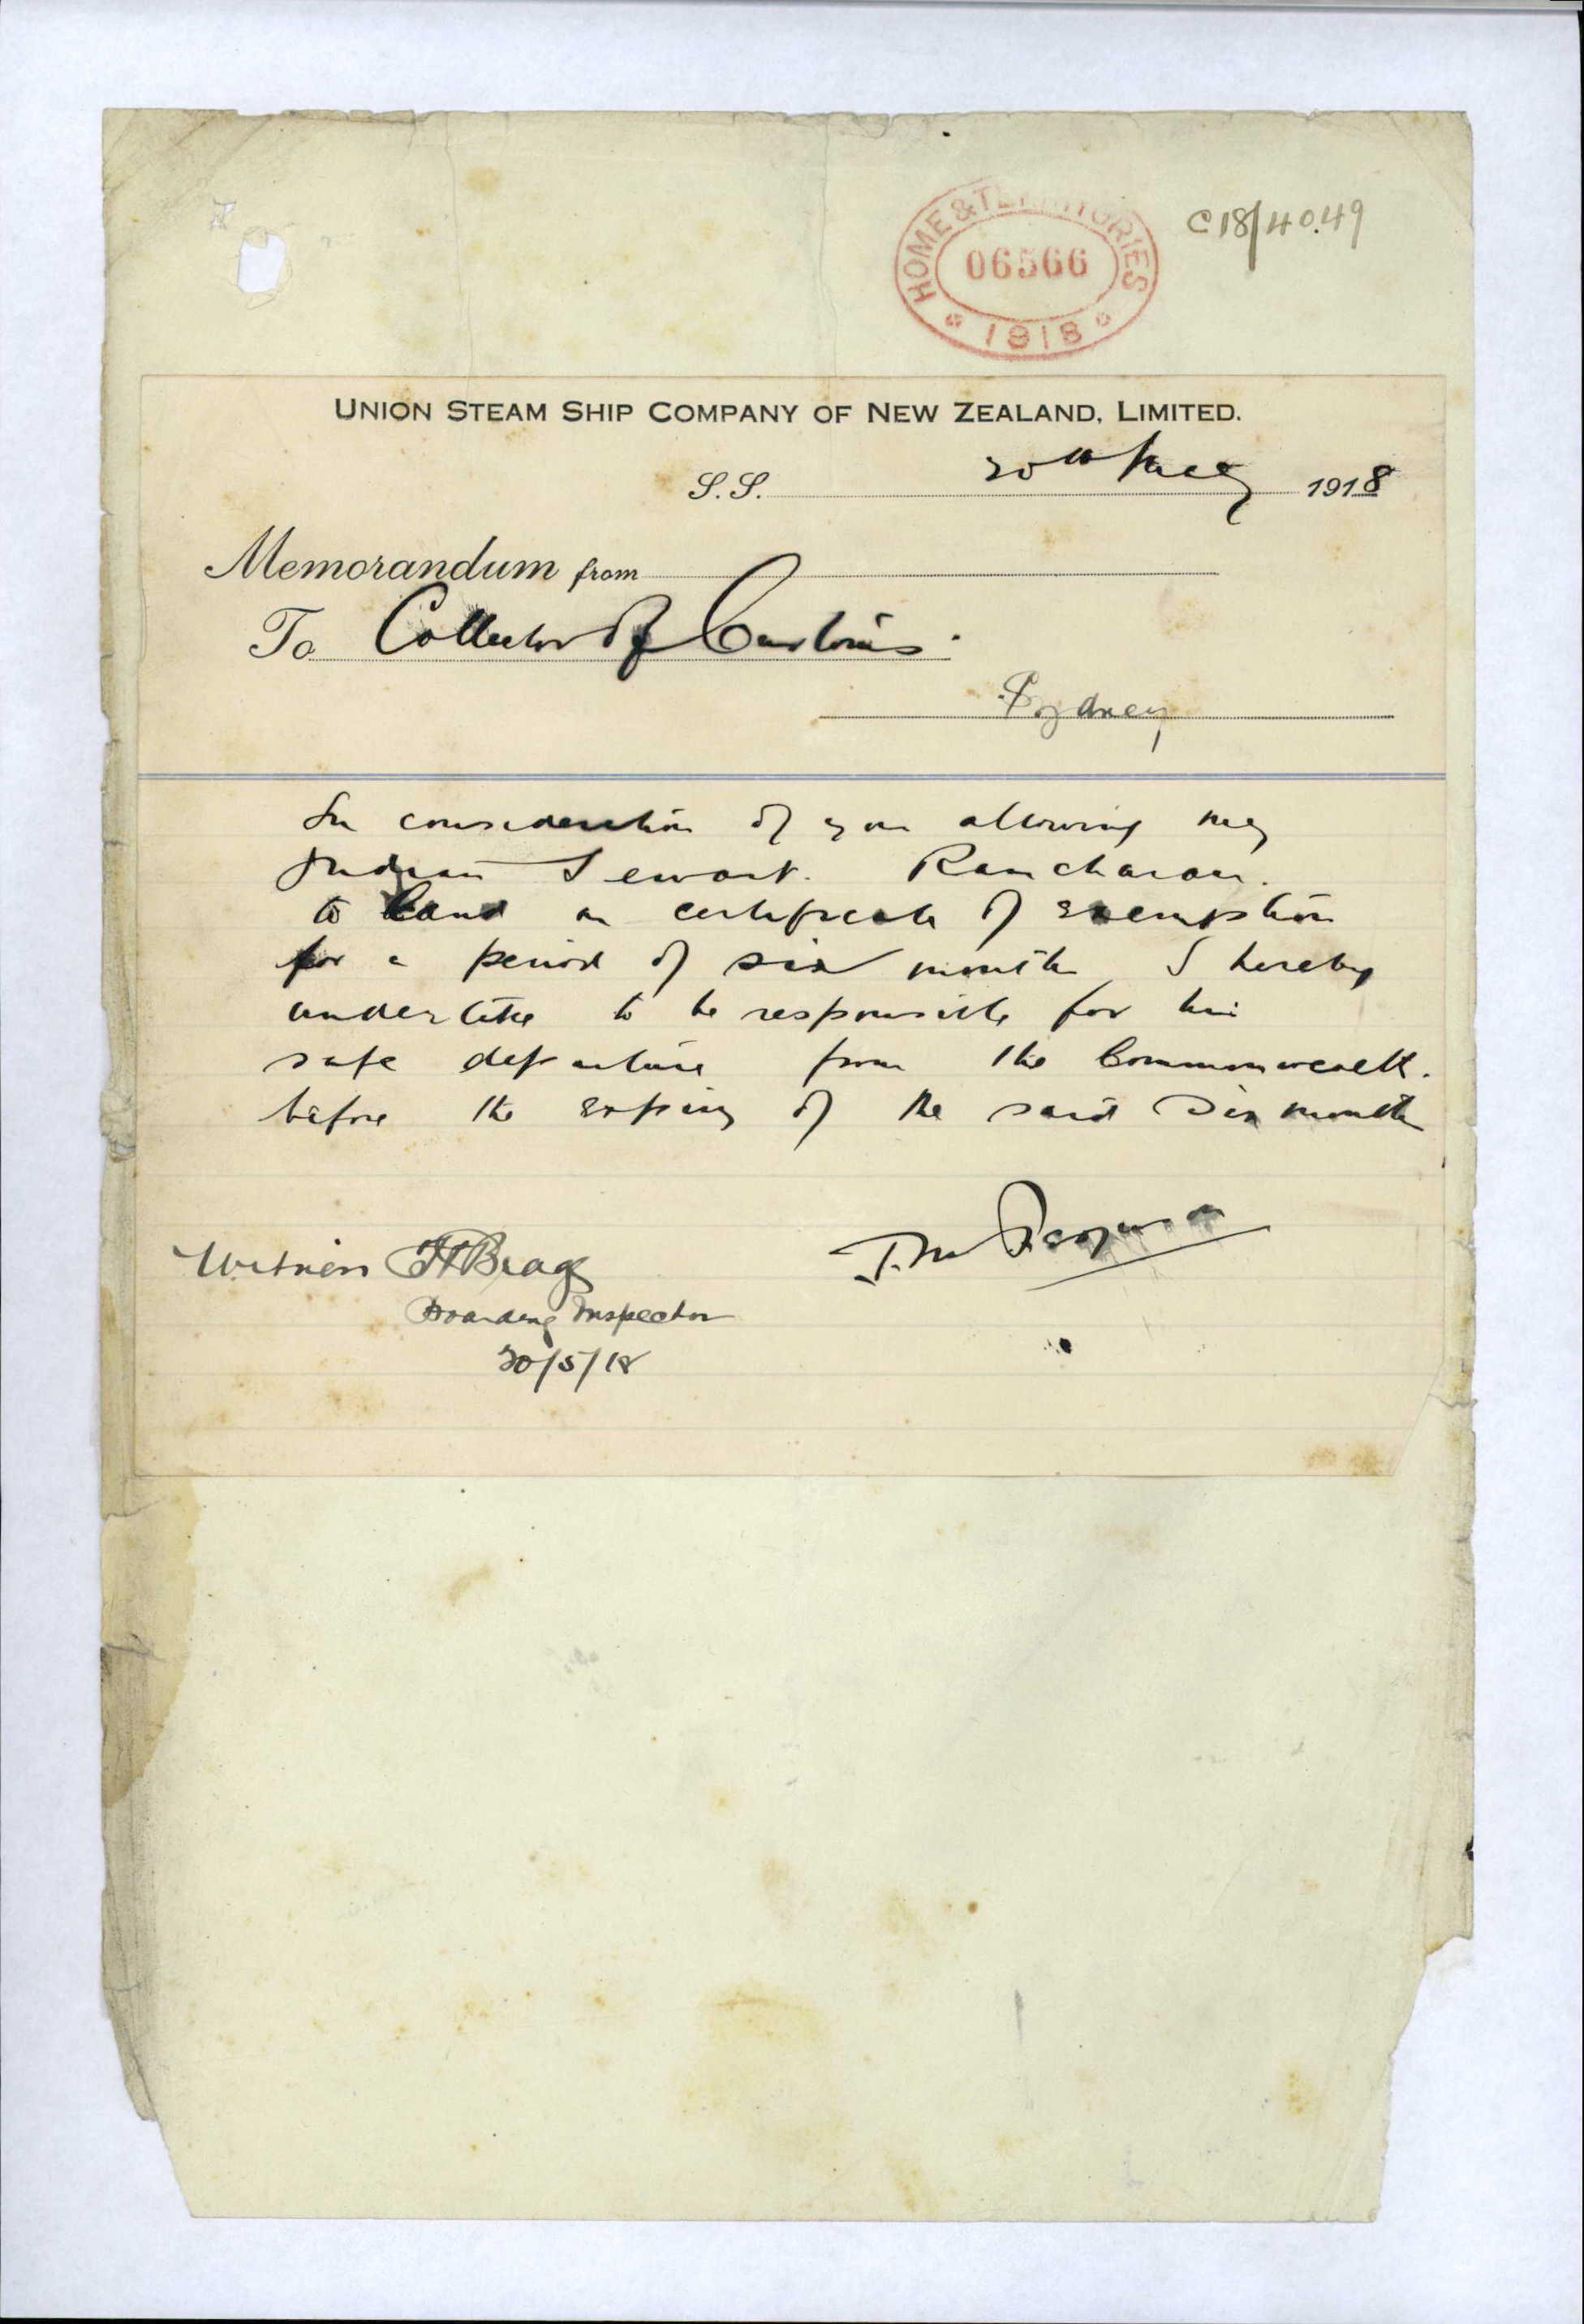 HOME & TERRITORIES
06566
1918
C18/4049
UNION STEAM SHIP COMPANY OF NEW ZEALAND, LIMITED.
S.S. 20th May 1918
Memorandum from
To Collector of Customs.
Sydney
In consideration of you allowing my
Indian Servant. Ramcharan.
to land on certificate of exemption
for a period of six months I hereby
undertake to be responsible for his
safe departure from the Commonwealth.
before the expiry of the said six months
Witness
Boarding Inspector
20/5/18